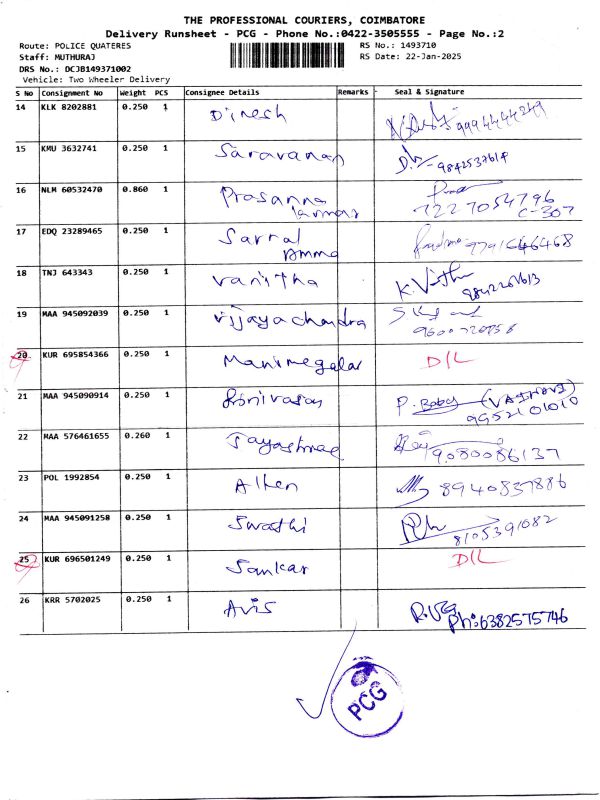 THE PROFESSIONAL COURIERS, COIMBATORE
Delivery Runsheet - PCG - Phone No.:0422-3505555 - Page No.:2
Route: POLICE QUATERES RS No.: 1493710
Staff: MUTHURAJ RS Date: 22-Jan-2025
DRS No.: DCJB149371002
Vehicle: Two Wheeler Delivery
S No Consignment No Weight PCS Consignee Details Remarks - Seal & Signature
14 KLK 8202881 0.250 1 Dinesh 9994444249
15 KMU 3632741 0.250 1 Saravanan 9842537614
16 NLM 60532470 0.860 1 Prasanna
kumar 7227054796
C-307
17 EDQ 23289465 0.250 1 Sarral
Amma 7791646468
18 TNJ 643343 0.250 1 Vanitha K. Vanitha
19 MAA 945092039 0.250 1 Vijjaya chandra
20 KUR 695854366 0.250 1 Manimegalai D/L
21 MAA 945090914 0.250 1 Srinivasan P. Baby (VAISHNAVI)
9952101010
22 MAA 576461655 0.260 1 Jayashree 9080086137
23 POL 1992854 0.250 1 Alken 8940837886
24 MAA 945091258 0.250 1 Swathi 8105391082
25 KUR 696501249 0.250 1 Sankar D/L
26 KRR 5702025 0.250 1 Avis
Ph:6382575746
PCG